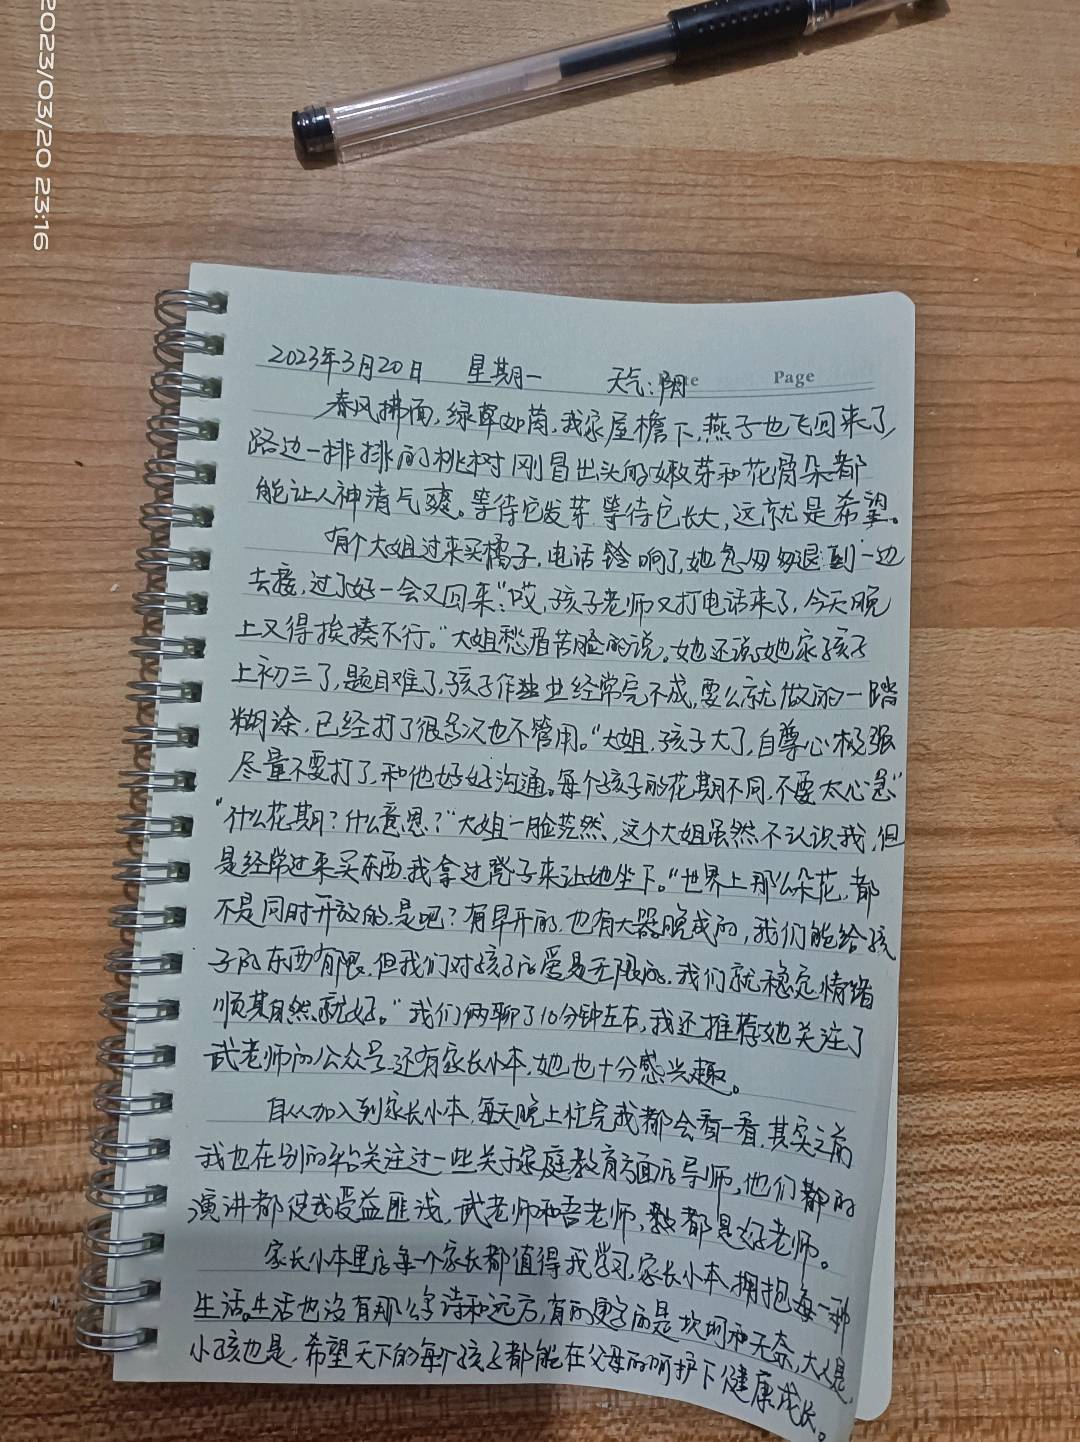 2023/03/20 23:16
2023年3月20日 星期一 天气:阴 Page
春风拂面,绿草如茵,我家屋檐下,燕子也飞回来了,
路边一排排的桃树刚冒出头的嫩芽和花骨朵都
能让人神清气爽。等待它发芽,等待它长大,这就是希望。
有个大姐过来买橘子,电话铃响了,她急匆匆退到一边
去接,过了好一会又回来:“哎,孩子老师又打电话来了,今天晚
上又得挨揍不行。”大姐愁眉苦脸的说。她还说她家孩子
上初三了,题目难了,孩子作业经常完不成,要么就做的一踏
糊涂,已经打了很多次也不管用。“大姐,孩子大了,自尊心极强
尽量不要打了,和他好好沟通。每个孩子的花期不同,不要太心急”
“什么花期?什么意思?”大姐一脸茫然,这个大姐虽然不认识我,但
是经常过来买东西,我拿过凳子来让她坐下。“世界上那么朵花,都
不是同时开放的,是吧?有早开的,也有大器晚成的,我们能给孩
子的东西有限,但我们对孩子的爱是无限的,我们就稳定情绪
顺其自然就好。”我们俩聊了10分钟左右,我还推荐她关注了
武老师的公众号,还有家长小本,她也十分感兴趣。
自从加入到家长小本,每天晚上忙完我都会看一看,其实之前
我也在别的平台关注过一些关于家庭教育方面的导师,他们都的
演讲都使我受益匪浅,武老师和吾老师,都是好老师。
家长小本里的每一个家长都值得我学习,家长小本,拥抱每一种
生活。生活也没有那么多诗和远方,有的更多的是坎坷和无奈,大人是,
小孩也是,希望天下的每个孩子都能在父母的呵护下健康成长。